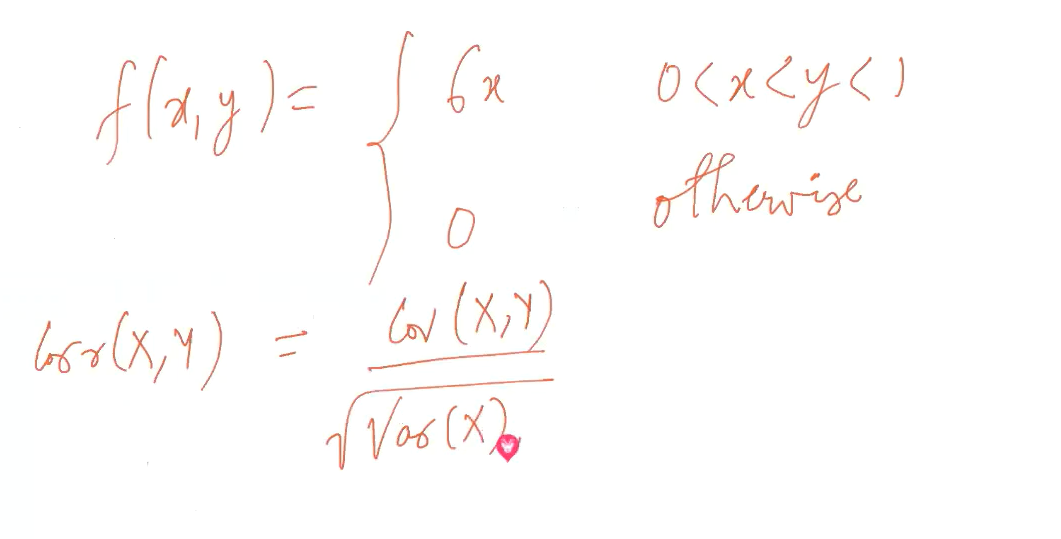 f(x,y) = { 6x 0<x<y<1
0 otherwise
Corr(X,Y) = Cov(X,Y)
√Var(X)